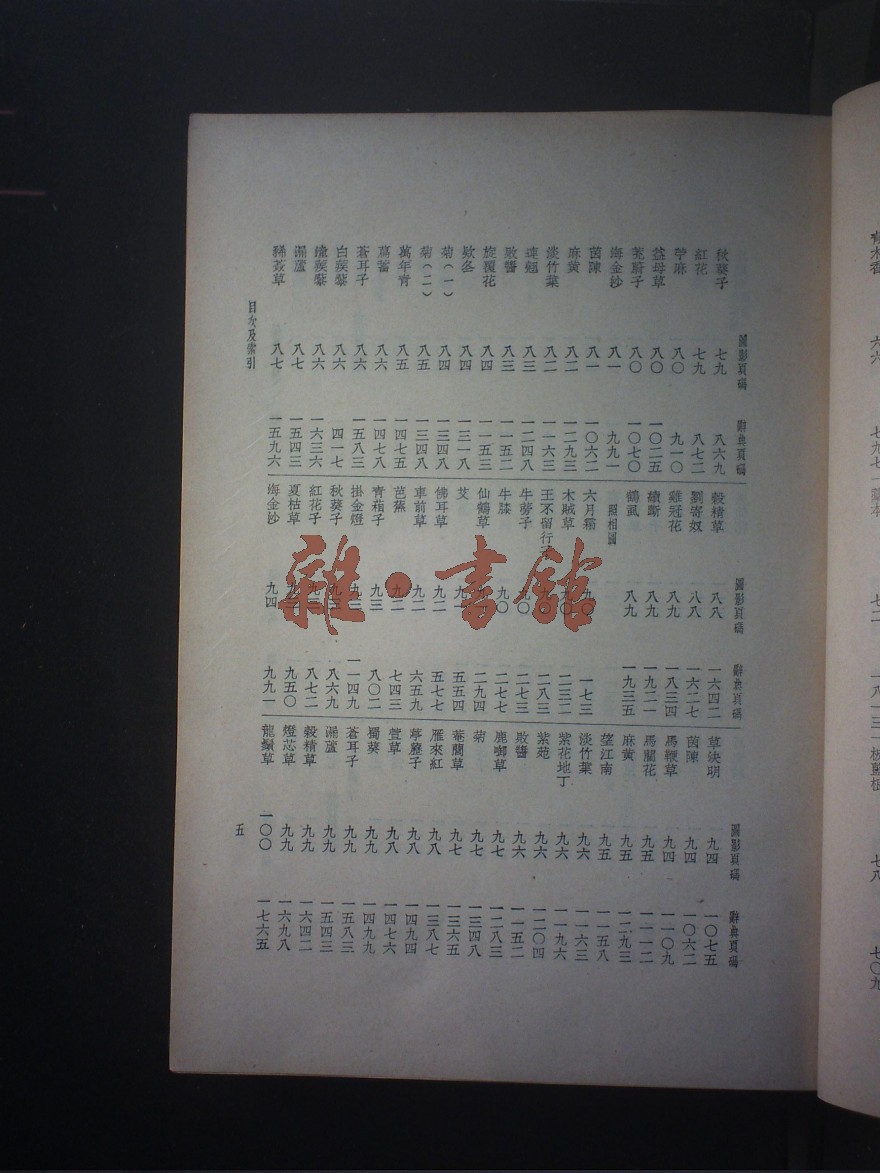 圖影頁碼 辭典頁碼
秋葵子 七九 八六九
紅花 七九 八七二
苧麻 八〇 九一〇
益母草 八〇 一〇二五
茺蔚子 八〇 一〇七〇
海金沙 八一 九九一
茵陳 八一 一〇六二
麻黃 八二 一二九三
淡竹葉 八二 一一六三
連翹 八三 一二四八
敗醬 八三 一一五二
旋覆花 八四 一一五三
款冬 八四 一三一八
菊(一) 八四 一三四八
菊(二) 八五 一三四八
萬年青 八五 一四七五
萹蓄 八六 一四七八
蒼耳子 八六 一五八三
白蒺藜 八六 四一七
潼蒺藜 八六 一六三六
漏蘆 八七 一五四三
豨薟草 八七 一五九六
圖影頁碼 辭典頁碼
穀精草 八八 一六四二
劉寄奴 八八 一六二七
雞冠花 八九 一八三四
續斷 八九 一九二一
鶴虱 八九 一九三五
照相圖
六月霜 九〇 一七三
木賊草 九〇 二三二
王不留行子 九〇 二八三
牛蒡子 九〇 二七三
牛膝 九〇 二七七
仙鶴草 二九四
艾 五五四
佛耳草 九二 五七七
車前草 九二 六五九
芭蕉 九二 七四三
青葙子 九三 八〇二
掛金燈 九三 一一四九
秋葵子 九三 八六九
紅花子 九三 八七二
夏枯草 九三 九五〇
海金沙 九四 九九一
圖影頁碼 辭典頁碼
草決明 九四 一〇七五
茵陳 九四 一〇六二
馬鞭草 九四 一一〇九
馬蘭花 九五 一一一二
麻黃 九五 一二九三
望江南 九五 一一五八
淡竹葉 九六 一一六三
紫花地丁 九六 一一九六
紫菀 九六 一二〇四
敗醬 九六 一一五二
鹿啣草 九七 一二八三
菊 九七 一三四八
菴䕡草 九七 一三六五
雁來紅 九八 一三八七
葶藶子 九八 一四九四
萱草 九八 一四七六
蜀葵 九九 一四九九
蒼耳子 九九 一五八三
漏蘆 九九 一五四三
穀精草 九九 一六四二
燈芯草 九九 一六九八
龍鬚草 一〇〇 一七六五
目次及索引
五
雜·書館